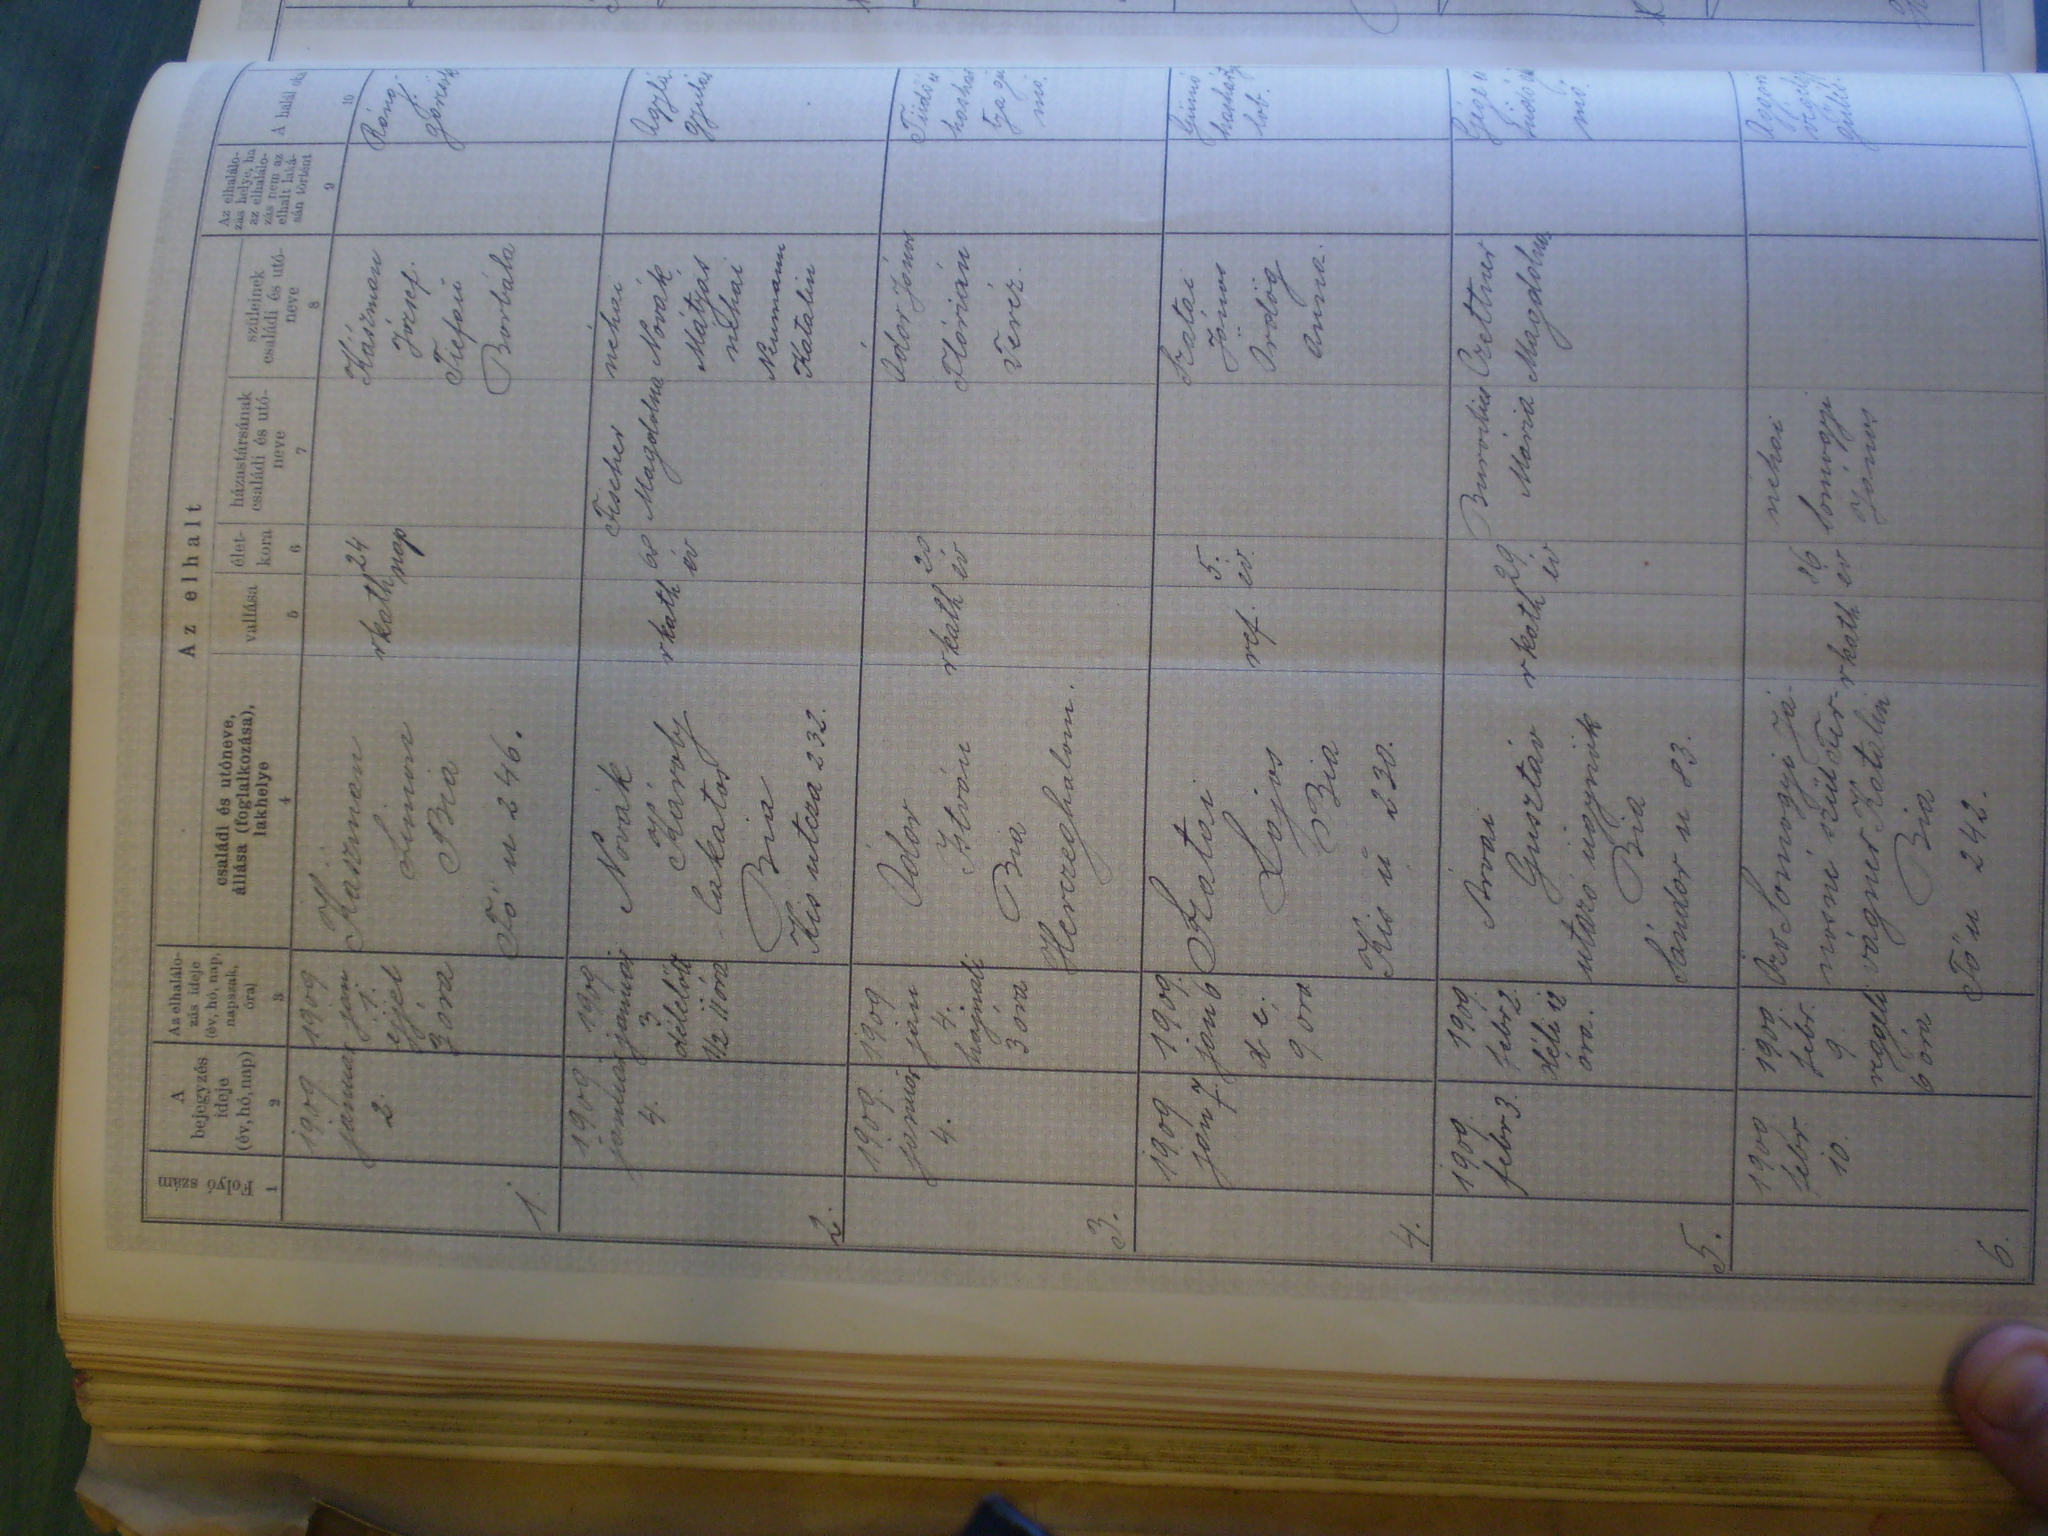 Az elhalt
Folyó szám
A
bejegyzés
ideje
(év, hó, nap)
Az elhalálo-
zás ideje
(év, hó, nap,
napszak,
óra)
családi és utóneve,
állása (foglalkozása),
lakhelye
vallása
élet-
kora
házastársának
családi és utó-
neve
szüleinek
családi és utó-
neve
Az elhalálo-
zás helye, ha
az elhalálo-
zás nem az
elhalt laká-
sán történt
A halál oka
1
2
3
4
5
6
7
8
9
10
1.
1909
január
2.
1909
jan
1.
éjjel
3 óra
Kászman
Simon
Bia
Fő u 246.
rkath
24
nap
Kászman
József
Tiefau
Borbála
2.
1909
január
4.
1909
január
3
délelőtt
1/2 11 óra
Novák
Károly
lakatos
Bia
Kis utcza 232.
rkath
év
Fischer
Magdolna
néhai
Novák
Mátyás
néhai
Neumann
Katalin
3.
1909.
január
4.
1909
jan
4.
hajnali
3 óra
Ódor
István
Bia
Herczeghalom.
rkath
20
év
Ódor János
Flórián
Teréz.
4.
1909
jan 7.
1909.
jan 6
d. e.
9 óra
Szatai
Lajos
Bia
Kis u 230.
ref.
5.
év.
Szatai
János
Ördög
Anna.
5.
1909.
febr 3.
1909.
febr 2.
déli 12
óra.
Gusztáv
utazó ügynök
Bia
Sándor u 83.
rkath
29
év
Mária
Czettner
Magdolna
6.
1909
febr
10.
1909.
febr.
9.
reggeli
6 óra
Özv Somogyi Já-
nosné szül.
vágner Katalin
Bia
Fő u 242.
rkath
86
év
néhai
Somogyi
János